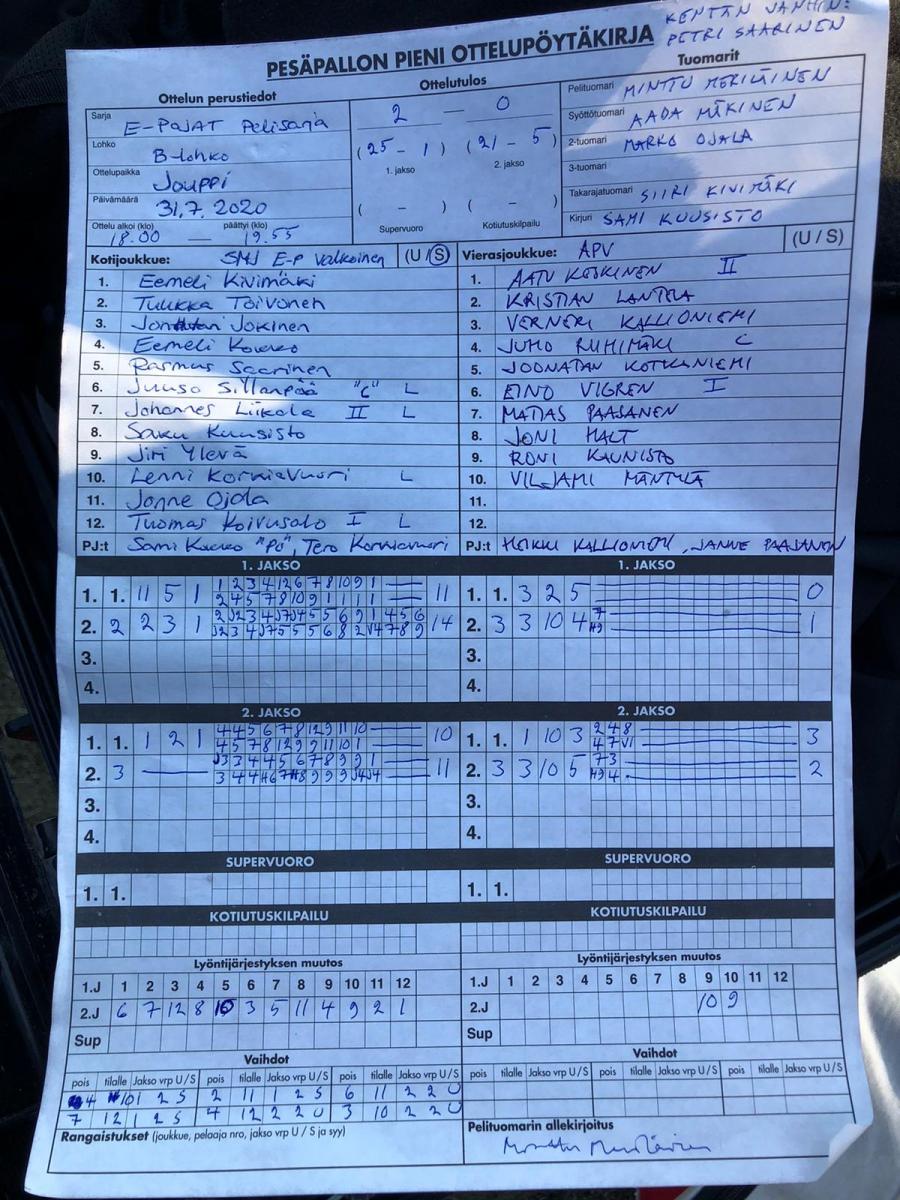 KENTÄN VANHIN:
PETRI SAARINEN
PESÄPALLON PIENI OTTELUPÖYTÄKIRJA
Ottelun perustiedot
Sarja E-POJAT Pelisarja
Lohko B-lohko
Ottelupaikka Jouppi
Päivämäärä 31.7.2020
Ottelu alkoi (klo) päättyi (klo)
18.00 — 19.55
Ottelutulos
2 — 0
(25 - 1) (21 - 5)
1. jakso 2. jakso
( - ) ( - )
Supervuoro Kotiutuskilpailu
Tuomarit
Pelituomari MINTTU MERILÄINEN
Syöttötuomari AADA MÄKINEN
2-tuomari MARKO OJALA
3-tuomari
Takarajatuomari SIIRI KIVIMÄKI
Kirjuri SAMI KUUSISTO
Kotijoukkue: SMJ E-P Valkoinen (U / S)
1. Eemeli Kivimäki
2. Tuukka Toivonen
3. Jokinen
4. Eemeli
5. Rasmus Saarinen
6. Juuso Sillanpää "C" L
7. Johannes Liikala II L
8. Saku Kuusisto
9. Jiri Ylevä
10. Lenni Korkiavuori L
11. Jonne Ojala
12. Tuomas Koivusalo I L
PJ:t Sami "PJ", Tero Korkiavuori
Vierasjoukkue: APV (U / S)
1. AATU KOSKINEN II
2. KRISTIAN LANTELA
3. VERNERI KALLIONIEMI
4. JUHO RUHIMÄKI C
5. JOONATAN KOTKANIEMI
6. EINO VIGREN I
7. MATIAS PAASANEN
8. JONI HALT
9. RONI KAUNISTO
10. VILJAMI MÄNTYLÄ
11.
12.
PJ:t HEIKKI KALLIONIEMI, JANNE PAAJANEN
1. JAKSO
1. 1. 11 5 1
1 2 3 4 12 6 7 8 10 9 1
2 4 5 7 8 10 9 1 1 1 1
11
2. 2 2 3 1
14
3.
4.
1. JAKSO
1. 1. 3 2 5 0
2. 3 3 10 4 1
3.
4.
2. JAKSO
1. 1. 1 2 1
4 4 5 6 7 8 12 9 11 10
4 5 7 8 12 9 9 11 10 1
10
2. 3
3 3 4 4 5 6 7 8 9 9 1
11
3.
4.
2. JAKSO
1. 1. 1 10 3
2 4 8
4 7 V1
3
2. 3 3 10 5
7 3
2
3.
4.
SUPERVUORO
1. 1.
SUPERVUORO
1. 1.
KOTIUTUSKILPAILU
KOTIUTUSKILPAILU
Lyöntijärjestyksen muutos
1.J 1 2 3 4 5 6 7 8 9 10 11 12
2.J 6 7 12 8 10 3 5 11 4 9 2 1
Sup
Lyöntijärjestyksen muutos
1.J 1 2 3 4 5 6 7 8 9 10 11 12
2.J 10 9
Sup
Vaihdot
pois tilalle Jakso vrp U/S pois tilalle Jakso vrp U/S pois tilalle Jakso vrp U/S
4 10 1 2 S 2 11 1 2 S 6 11 2 2 U
7 12 1 2 S 4 12 2 2 U 3 10 2 2 U
Vaihdot
pois tilalle Jakso vrp U/S pois tilalle Jakso vrp U/S pois tilalle Jakso vrp U/S
Rangaistukset (joukkue, pelaaja nro, jakso vrp U / S ja syy)
Pelituomarin allekirjoitus